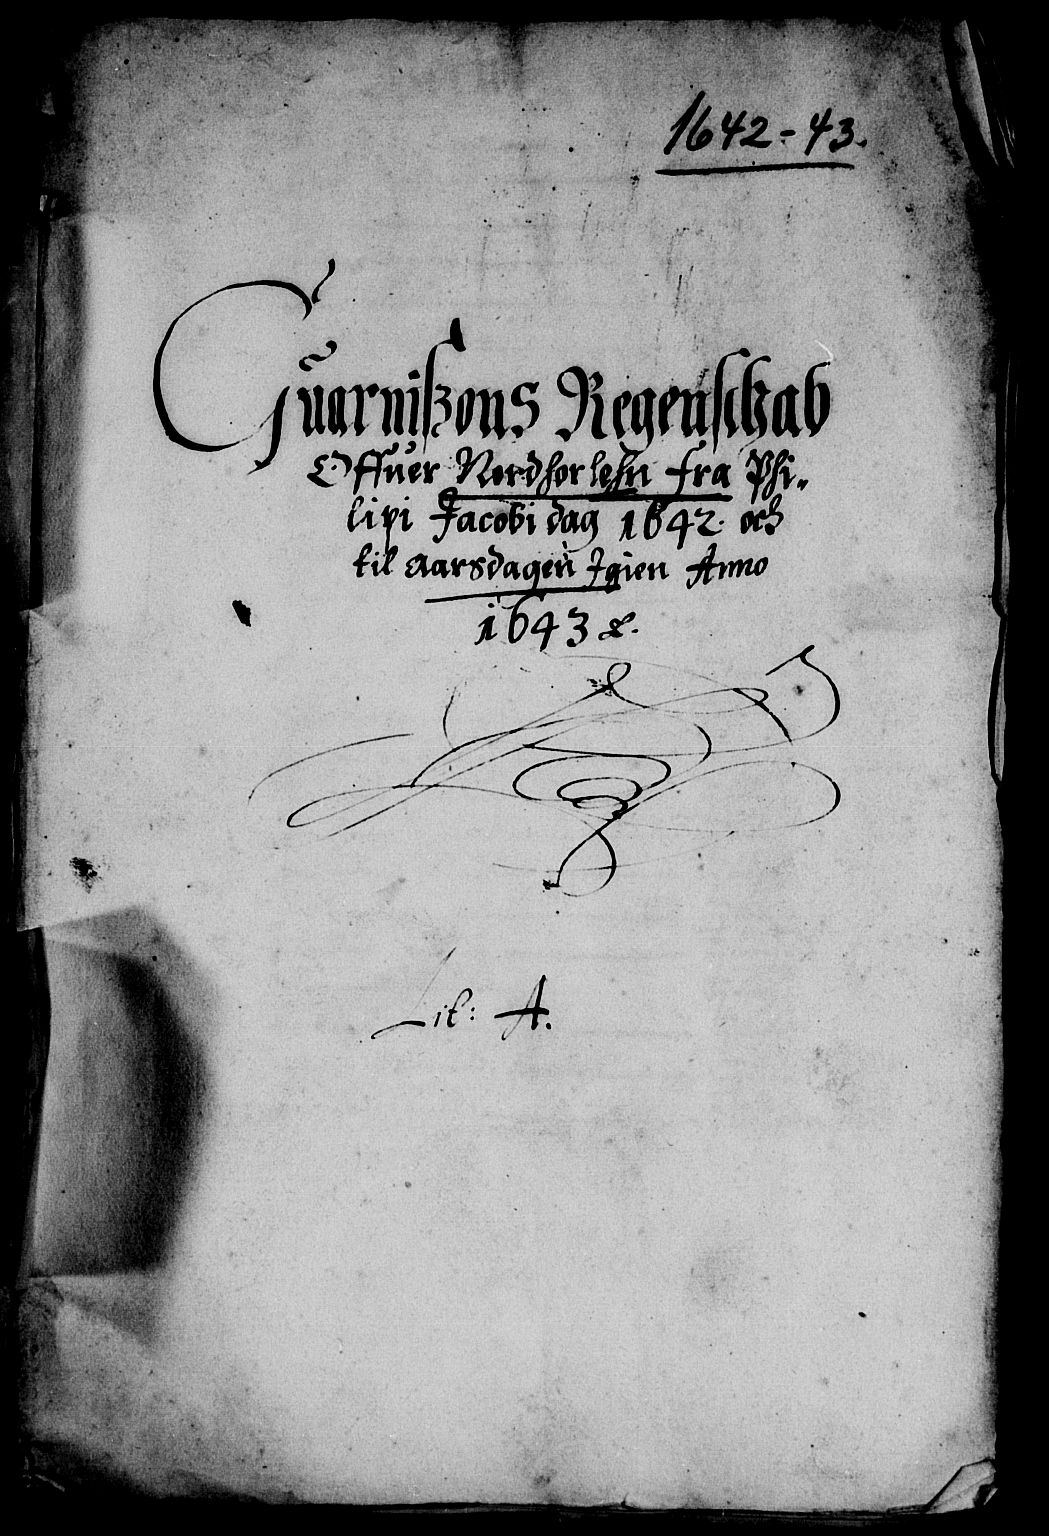 1642-43.
Guarnißons Regenskab
Offuer Nordhorlehn fra Phi-
lipi Jacobi dag 1642. och
til aarsdagen Igien Anno
1643 &.
Lit: A.